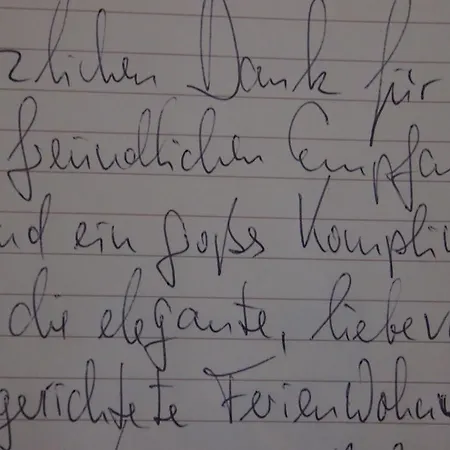 zlichen Dank für
freundlichen Empfa
nd ein großes Kompli
die elegante, liebev
gerichtete Ferienwohnu